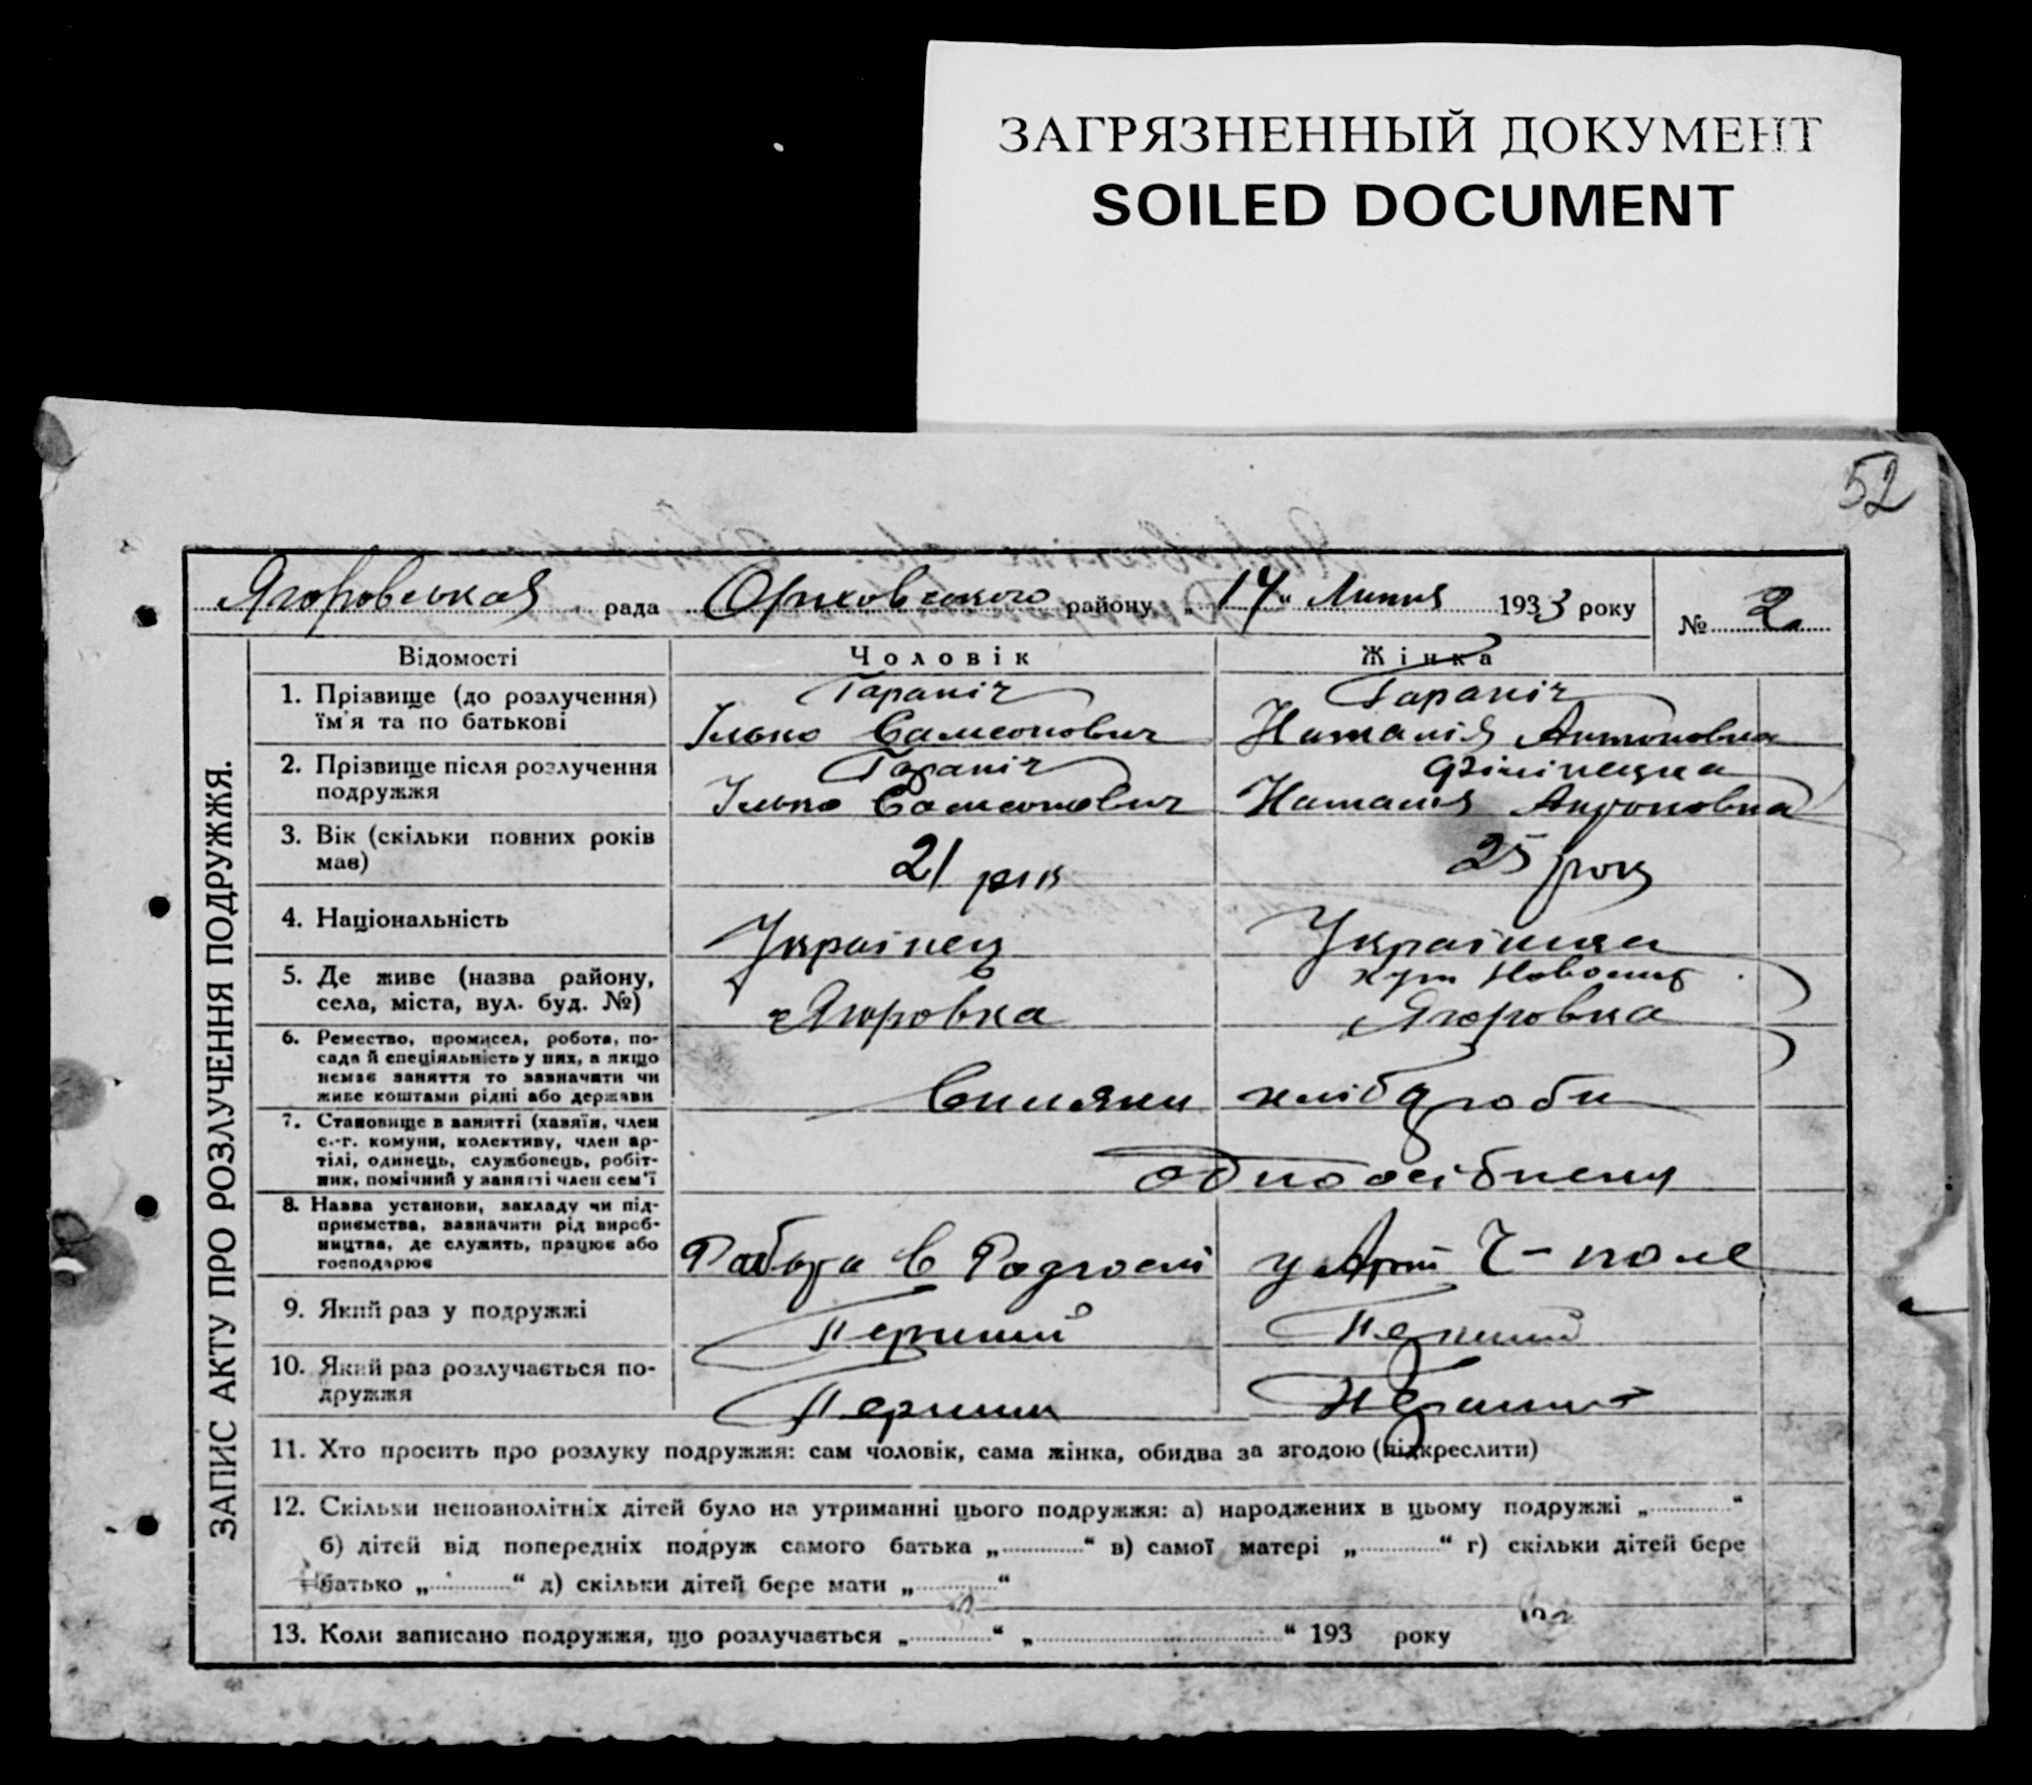 ЗАГРЯЗНЕННЫЙ ДОКУМЕНТ
SOILED DOCUMENT
52
Ягоровськая рада Оріховського району „14“ Липня 1933 року № 2
ЗАПИС АКТУ ПРО РОЗЛУЧЕННЯ ПОДРУЖЖЯ.
Відомості Чоловік Жінка
1. Прізвище (до розлучення) Гараніч Гараніч
їм'я та по батькові Ілько Самсонович Наталія Антоновна
2. Прізвище після розлучення Гараніч
подружжя Ілько Самсонович Наталія Антоновна
3. Вік (скільки повних років
має) 21 рік 25 років
4. Національність Українец Українка
5. Де живе (назва району, хут
села, міста, вул. буд. №) Ягоровка Ягоровка
6. Ремество, промисел, робота, по-
сада й специіяльність у них, а якщо
немає заняття то зазначити чи
живе коштами рідні або держави Силяни хлібороби
7. Становище в занятті (хазяїн, член
с.-г. комуни, колективу, член ар-
тілі, одинець, службовець, робіт-
ник, помічний у занятті член сем'ї одноосібнеки
8. Назва установи, закладу чи під-
приємства, зазначити рід вироб-
ництва, де служить, працює або
господарює Работа в у Арт Ч-поле
9. Який раз у подружжі Перший Перший
10. Який раз розлучається по-
дружжя Перший Перший
11. Хто просить про розлуку подружжя: сам чоловік, сама жінка, обидва за згодою (підкреслити)
12. Скільки неповнолітніх дітей було на утриманні цього подружжя: а) народжених в цьому подружжі „............“
б) дітей від попередніх подруж самого батька „............“ в) самої матері „............“ г) скільки дітей бере
батько „............“ д) скільки дітей бере мати „............“
13. Коли записано подружжя, що розлучається „............“ „....................................“ 193 року